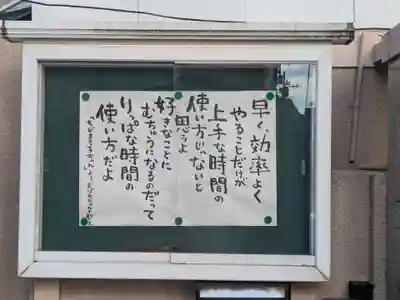 早く、効率よく
やることだけが
上手な時間の
使い方じゃないと
思うよ
好きなことに
むちゅうになるのだって
りっぱな時間の
使い方だよ